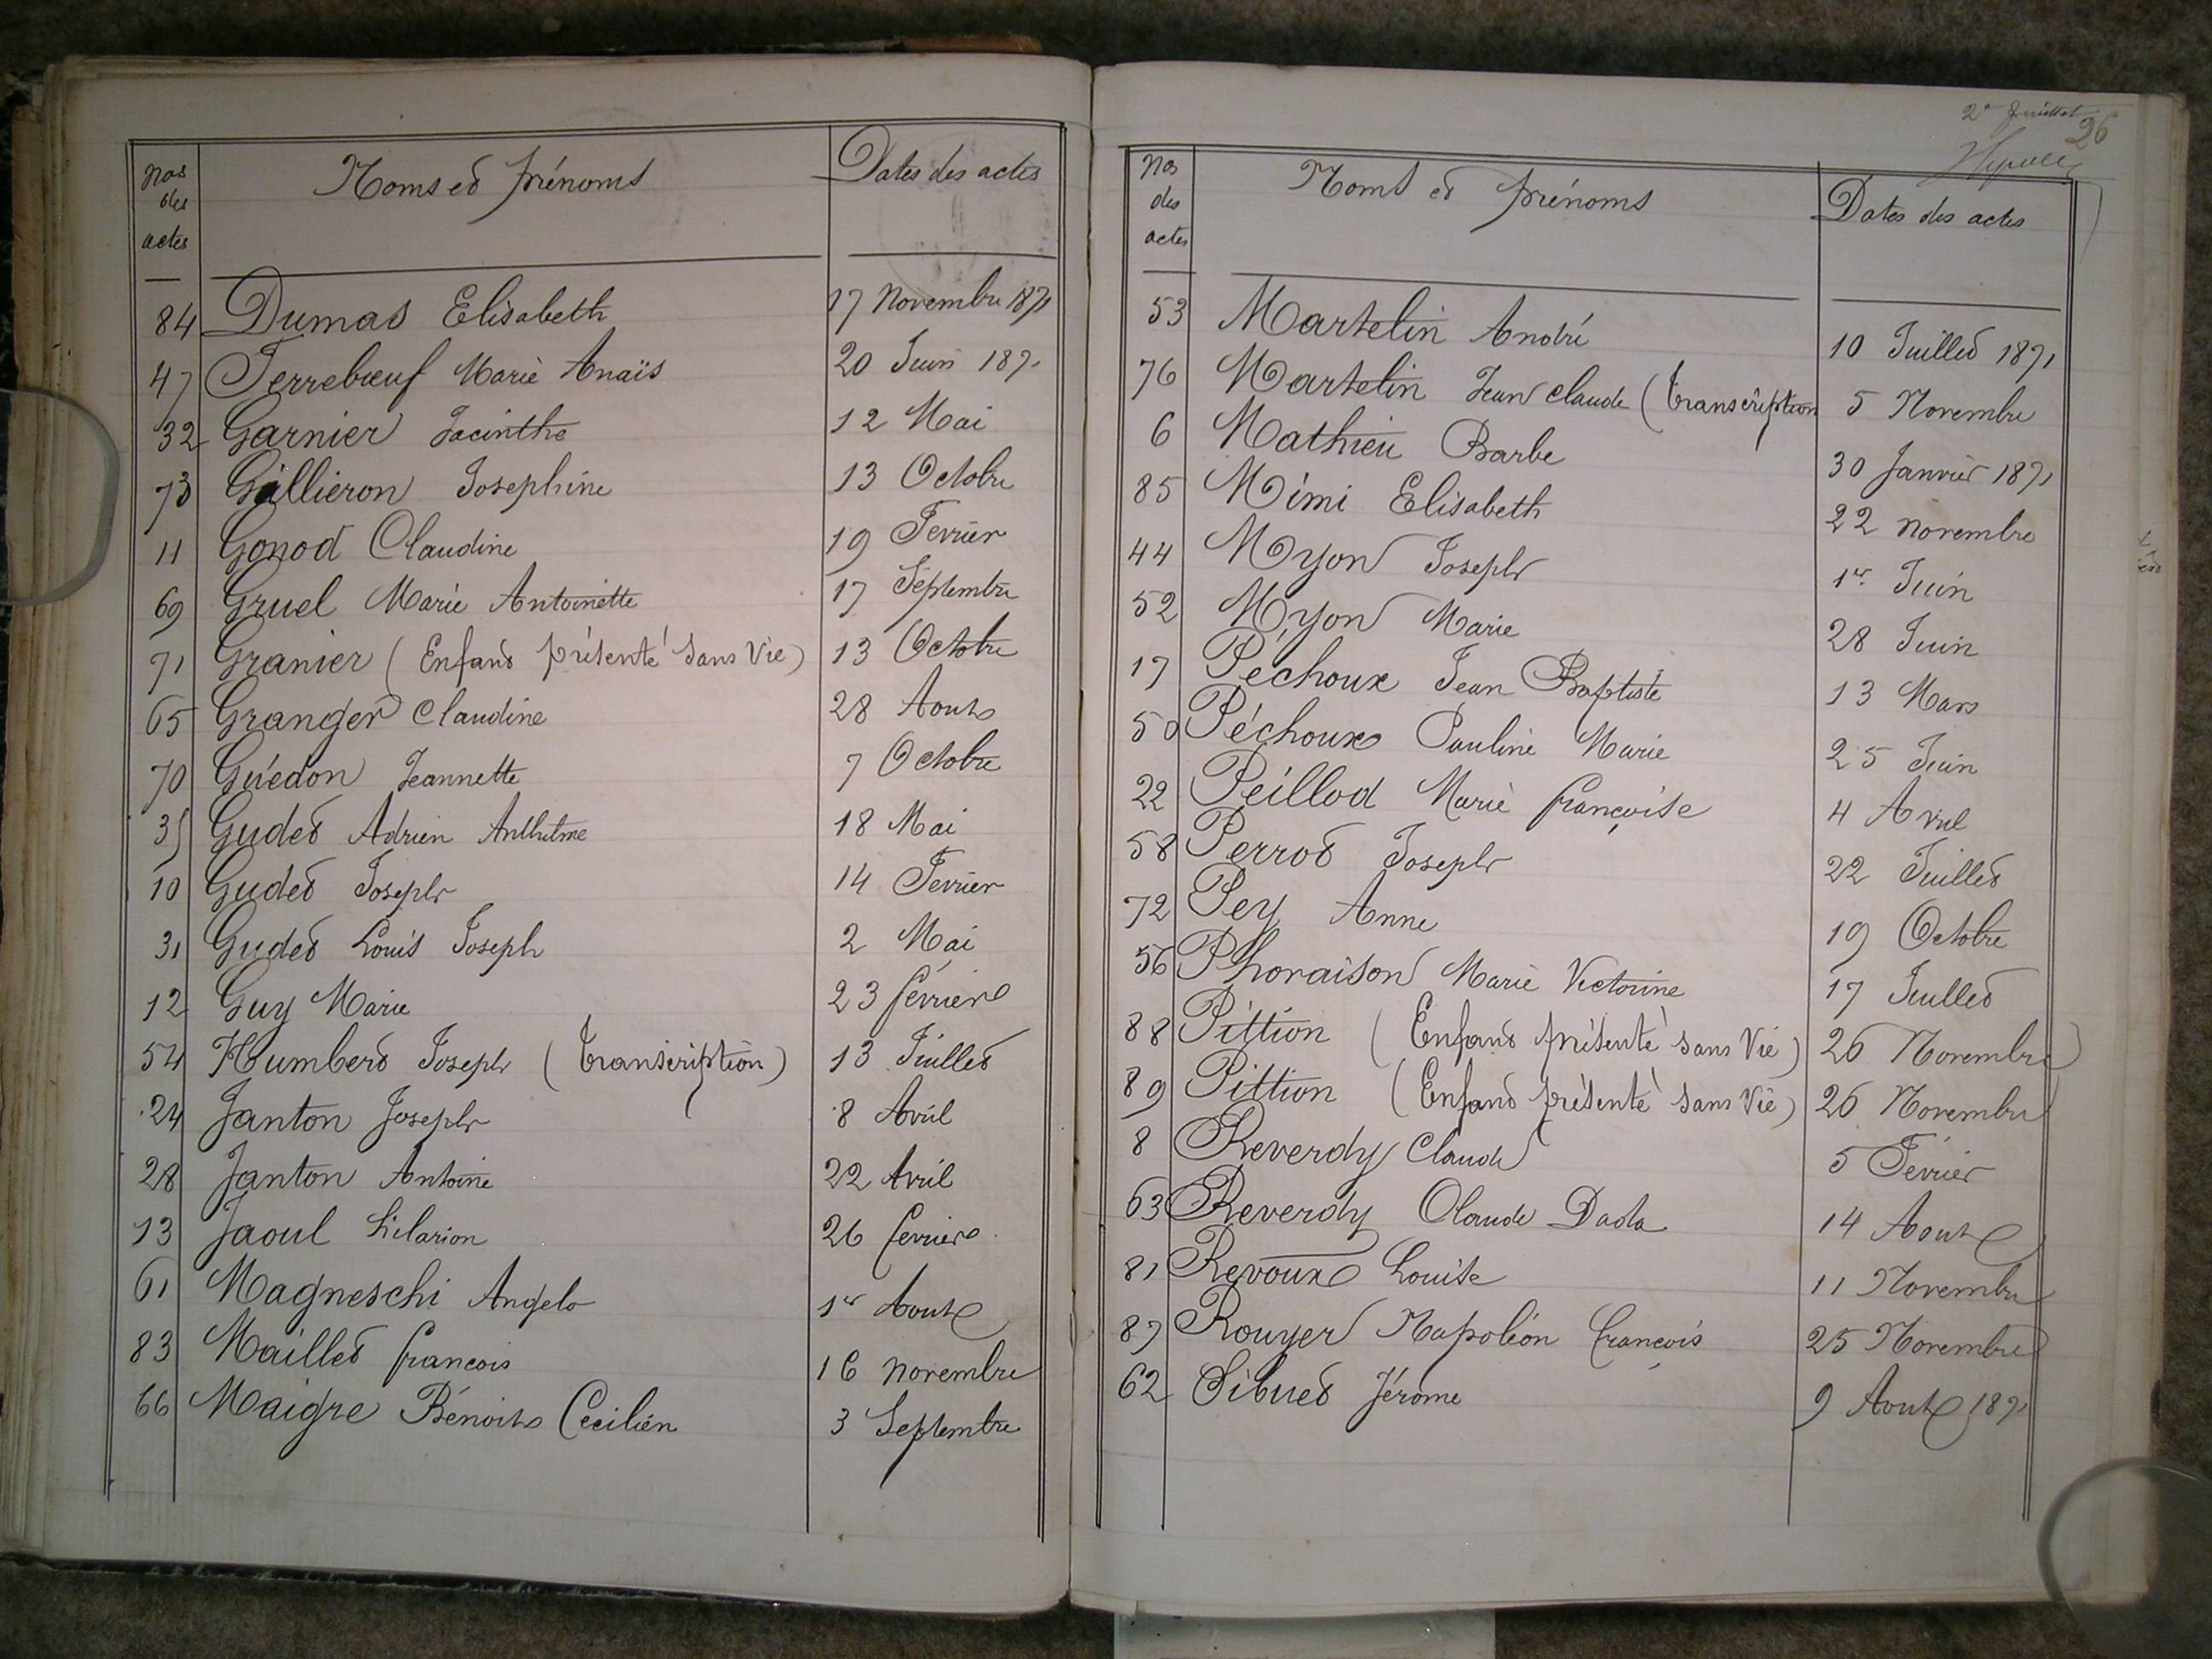 Nos des actes Noms et prénoms Dates des actes
84 Dumas Elisabeth 17 Novembre 1871
47 Ferrebœuf Marie Anaïs 20 Juin 187
32 Garnier Jacinthe 12 Mai
73 Gallieron Josephine 13 Octobre
11 Gonod Claudine 19 Fevrier
69 Gruel Marie Antoinette 17 Septembre
71 Granier (Enfant présenté sans Vie) 13 Octobre
65 Granger Claudine 28 Aout
70 Guédon Jeannette 7 Octobre
35 Gudet Adrien Anthelme 18 Mai
10 Gudet Joseph 14 Fevrier
31 Gudet Louis Joseph 2 Mai
12 Guy Marie 23 fevrier
54 Humbert Joseph (Transcription) 13 Juillet
24 Janton Joseph 8 Avril
28 Janton Antoine 22 Avril
13 Jaoul hilarion 26 fevrier
61 Magneschi Angelo 1er Aout
83 Maillet francois 16 novembre
66 Maigre Bénoit Cecilien 3 Septembre
2e feuillet
26
Nos des actes Noms et prénoms Dates des actes
53 Martelin André 10 Juillet 1871
76 Martelin Jean claude (Transcription 5 Novembre
6 Mathieu Barbe 30 Janvier 1871
85 Mimi Elisabeth 22 novembre
44 Myon Joseph 1er Juin
52 Myon Marie 28 Juin
17 Péchoux Jean Baptiste 13 Mars
50 Péchoux Pauline Marie 25 Juin
22 Peillod Marie françoise 4 Avril
58 Perrot Joseph 22 Juillet
72 Pey Anne 19 Octobre
56 Phoraison Marie Victorine 17 Juillet
88 Pittion (Enfant présenté sans Vie) 26 Novembre
89 Pittion (Enfant présenté sans Vie) 26 Novembre
8 Reverdy Claude 5 Fevrier
63 Reverdy Claude Dada 14 Aout
81 Revoux Louise 11 Novembre
87 Rouyer Napoléon françois 25 Novembre
62 Sibuet Jérome 9 Aout 1871